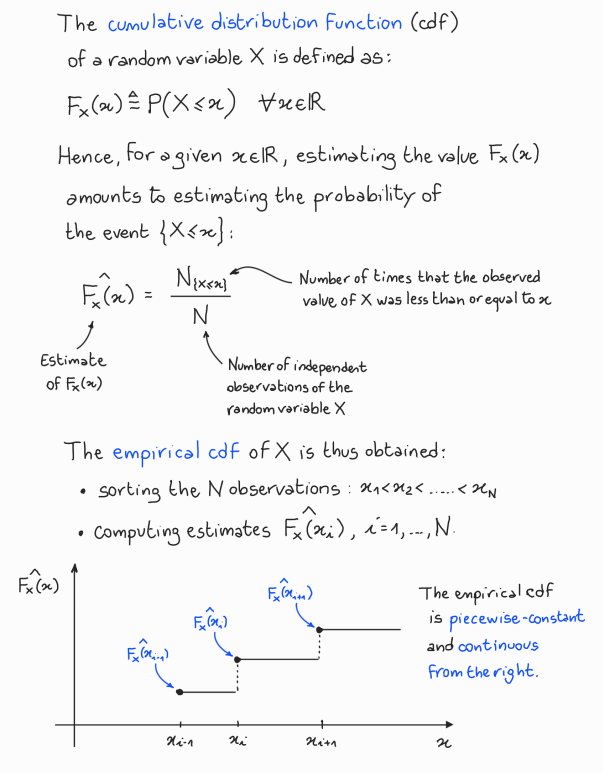 The cumulative distribution function (cdf)
of a random variable X is defined as:
Fₓ(x) ≜ P(X ≤ x) ∀x∈ℝ
Hence, for a given x∈ℝ, estimating the value Fₓ(x)
amounts to estimating the probability of
the event {X ≤ x}:
F̂ₓ(x) = N_{X≤x} / N
Number of times that the observed
value of X was less than or equal to x
Estimate
of Fₓ(x)
Number of independent
observations of the
random variable X
The empirical cdf of X is thus obtained:
• sorting the N observations : x₁<x₂< ..... < x_N
• computing estimates F̂ₓ(xᵢ), i=1, ..., N.
F̂ₓ(x)
F̂ₓ(xᵢ₋₁)
F̂ₓ(xᵢ)
F̂ₓ(xᵢ₊₁)
The empirical cdf
is piecewise-constant
and continuous
from the right.
xᵢ₋₁ xᵢ xᵢ₊₁ x